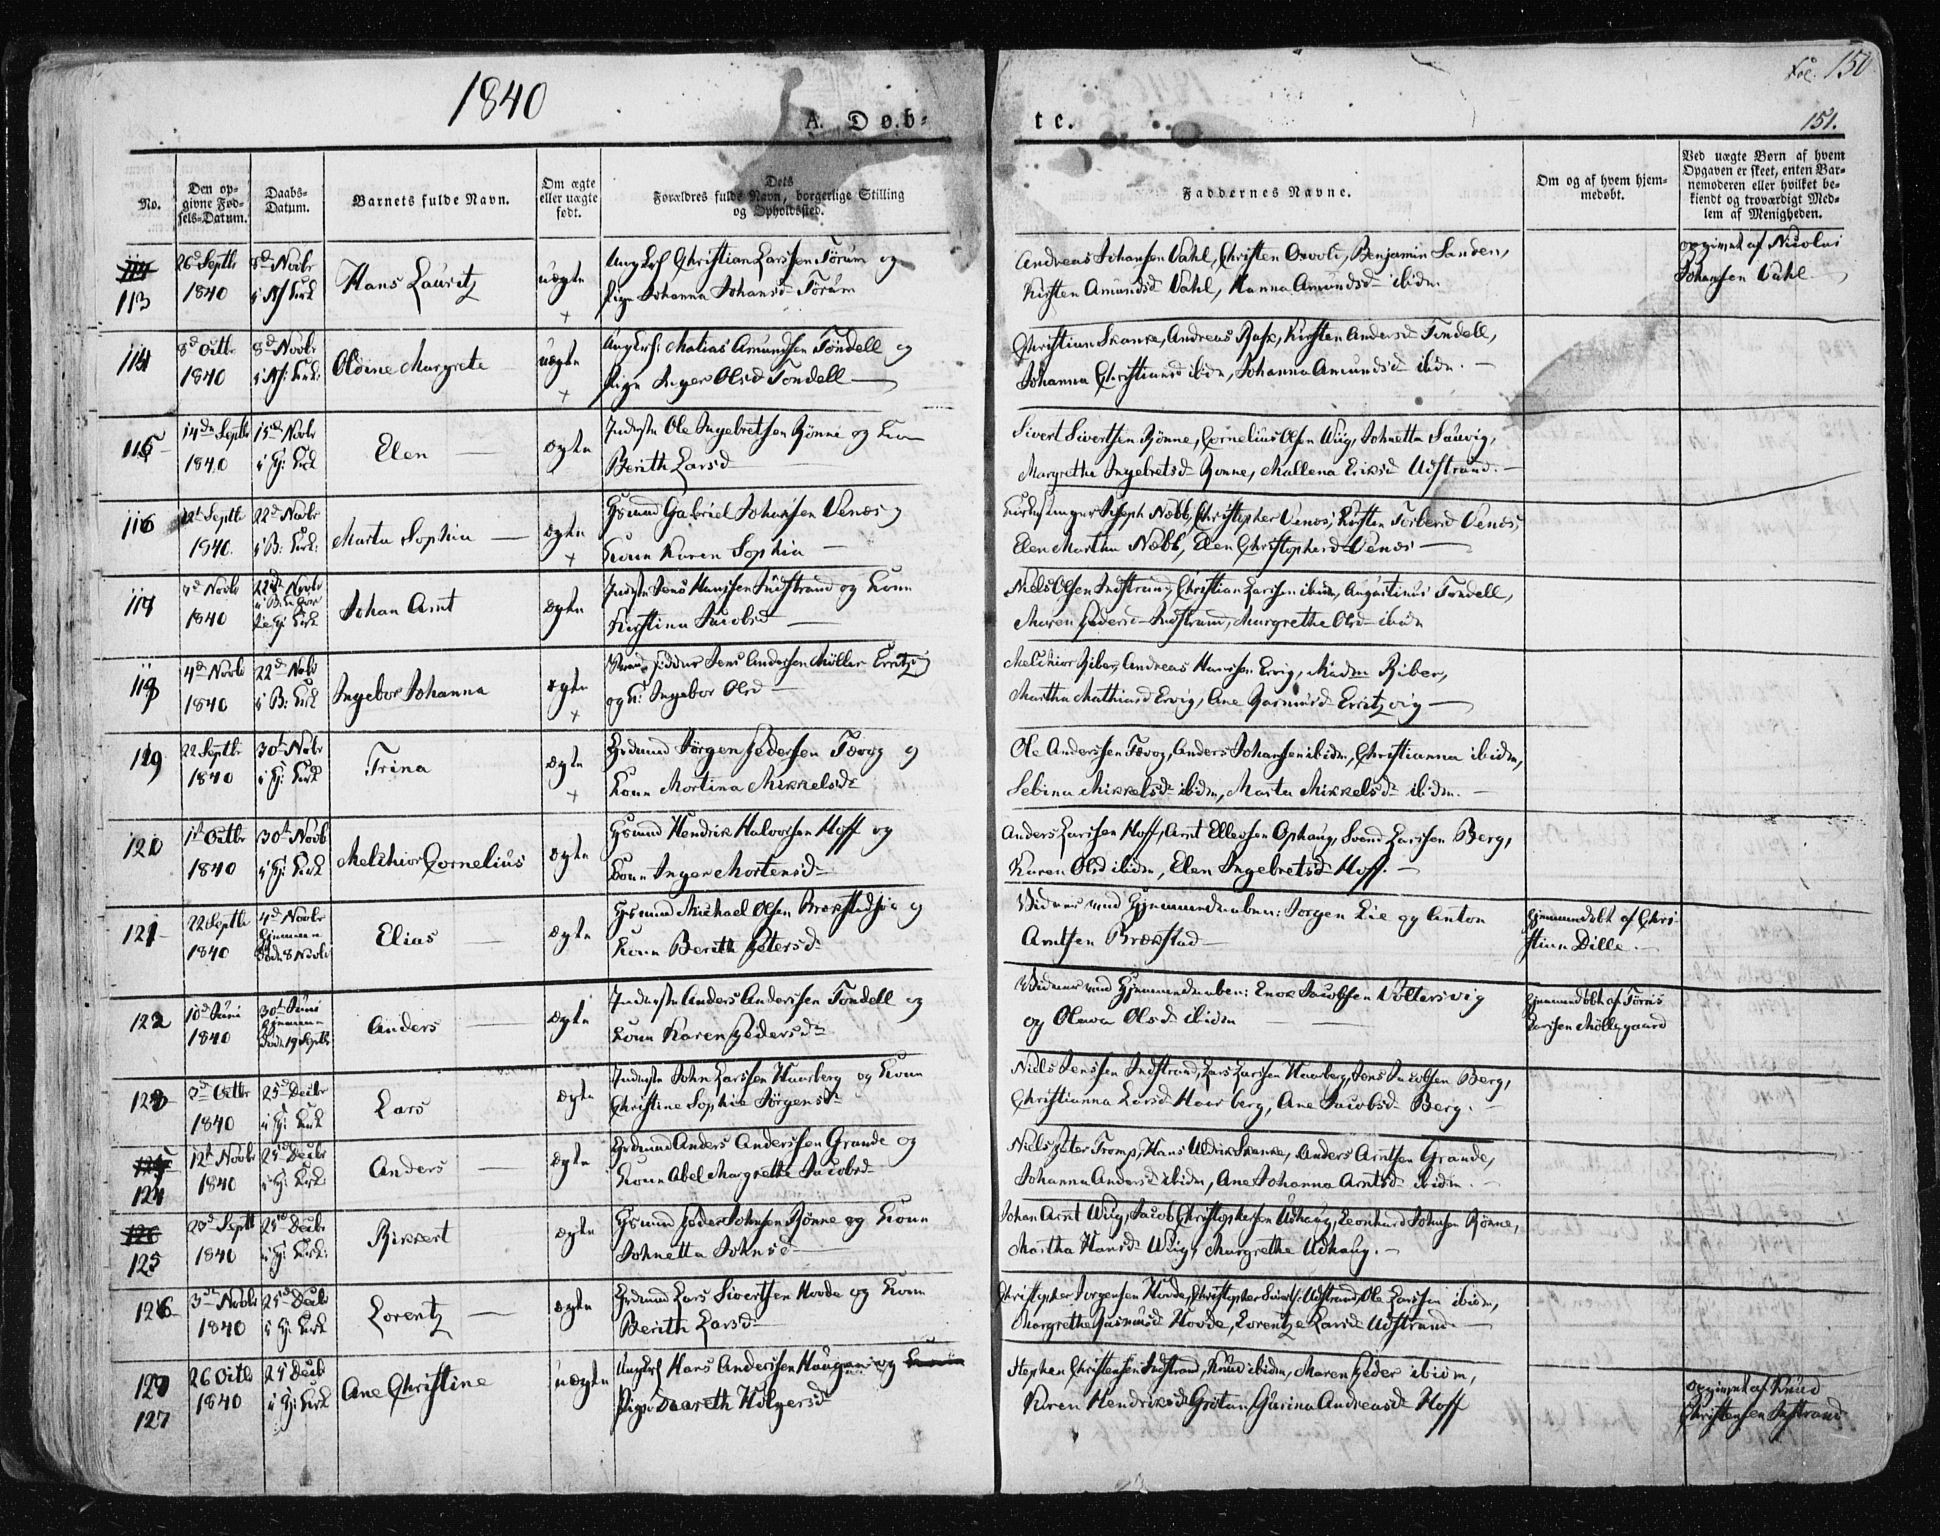 1840
A. Døb-
te.
Fol. 150
151.
No.
Den op-
givne Fød-
sels-Datum.
Daabs-
Datum.
Barnets fulde Navn.
Om ægte
eller uægte
født.
Dets
Forældres fulde Navn, borgerlige Stilling
og Opholdssted.
Faddernes Navne.
Om og af hvem hjem-
medøbt.
Ved uægte Børn af hvem
Opgaven er skeet, enten Bar-
nemoderen eller hvilket be-
kiendt og troværdigt Med-
lem af Menigheden.
113
26d Septbr
1840
8d Novbr
Hans Lauritz
uægte
Ungkrl Christian Larssen Tørum og
Pige Johanna Johansd Tørum
Andreas Johansen Vahl, Christen Osvold, Benjamin Sanden,
Kirsten Amundsd Vahl, Hanna Amundsd ibidm
opgivet af Nicolai
Johansen Vahl
114
8d Octbr
1840
8d Novbr
Oldine Margrete
uægte
Ungkrl: Matias Amundsen Tøndell og
Pige Inger Olsd Tøndell
Christian Skanke, Andreas Rask, Kirsten Andersd Tøndell,
Johanna Christiansd ibidm, Johanna Amundsd ibidm.
115
14de Septbr
1840
15de Novbr
i Hj: Kirk
Elen
ægte
Inderste Ole Ingebretsen Rønne og Kone
Berith Larsd
Sivert Sivertsen Rønne, Cornelius Olsen Wiig, Johnetta Sauvig,
Margrethe Ingebretsd Rønne, Mallena Eriksd Udstrand.
116
Septbr
1840.
22d Novbr
i B: Kirk:
Marta Sophia
ægte
Gsmand Gabriel Johansen Venæs og
Kone Karen Sophia
Kirkesanger Joseph Næbb, Christopher Venæs, Kirsten Torbersd Venæs,
Elen Martha Næbb, Elen Christophersd Venæs
117
Novbr
1840
22d Novbr
Johan Arnt
ægte
Inderste Jens Hanssen Indstrand og Kone
Kirstina Jacobsd
Niels Olsen Indstrand, Christian Larssen ibidm, Augustinus Tøndell,
Maren Pedersd Indstrand, Margrethe Olsd ibidm
118
4d Novbr
1840
22d Nobr
i B: Kirk
Ingebor Johanna
ægte
Strandsidder Jens Andersen Møller Erritzvig
og K: Ingebor Olsd
Melchior Riber, Andreas Hanssen Ervig, Madm Riber,
Martha Mathiasd Ervig, Ane Rasmusd Erritzvig
119
22 Septbr
1840
30t Nobr
i Hj: Kirk
Trina
ægte
Grdmand Jørgen Pedersen Tævog og
Kone Mortina Mikkelsd
Ole Andersen Tævog, Anders Johansen ibidm, Christianna ibidm,
Sebina Mikkelsd ibidm, Marta Mikkelsd ibidm.
120
11t Octbr
1840
30t Novb
i Hj: Kirk
Melchior Cornelius
ægte
Gsmand Hendrik Halvorsen Hoff og
Kone Inger Mortensd
Anders Larssen Hoff, Arnt Ellevsen Ophaug, Svend Larssen Berg,
Karen Olsd ibidm, Elen Ingebretsd Hoff.
121
22 Septbr
1840
4d Novbr
Hjemme
Død 8 Novbr
Elias
ægte
Gsmand Michael Olsen Brækstadsøe og
Kone Berith Petersd
Vidner ved Hjemmedaaben: Jørgen Lie og Anton
Arntsen Brækstad
Hjemmedøbt af Chri-
stian Dille.
122
10d Juni
1840
30t Juni
Hjemme
Død 19 Septbr
Anders
ægte
Inderste Anders Andersen Tøndell og
Kone Karen Pedersd
Vidner ved Hjemmedaaben: Enok Jacobsen Voltersvig
og Olava Olsd ibidm
Hjemmedøbt af Tørris
Larssen Møllegaard
123
3d Octbr
1840
25d Decbr
i Hj: Kirk
Lars
ægte
Inderste John Larssen Haarberg og Kone
Christine Sophie Jørgensd
Niels Jenssen Indstrand, Lars Larssen Haarberg, Jens Jacobsen Berg,
Christianna Larsd Haarberg, Ane Jacobsd Berg.
124
12t Novbr
1840
25d Decbr
i Hj: Kirk
Anders
ægte
Grdmand Anders Andersen Grande og
Kone Abel Margrethe Jacobsd
Niels Peter Tromp, Hans Uldrik Skanke, Anders Arntsen Grande,
Johanna Andersd ibidm, Ane Johanna Arntsd ibidm.
126
125
23d Septbr
1840
25d Decbr
i Hj: Kirk:
Rikkert
ægte
Gsmand Peder Johnsen Rønne og Kone
Johnetta Johnsd
Johan Arnt Wiig, Jacob Christophersen Udhaug, Leonhard Johnsen Rønne,
Martha Hansd Wiig, Margrethe Udhaug.
126
3d Novbr
1840
25d Decbr
i Hj: Kirk
Lorentz
ægte
Grdmand Lars Sivertsen Hovde og Kone
Berith Larsd
Christopher Jørgensen Hovde, Christopher Siverts: Udstrand, Ole Larssen ibidm,
Margrethe Rasmusd Hovde, Lorentze Larsd Udstrand.
127
127
26 Octb
1840
25d Decbr
i Hj: Kirk
Ane Christine
uægte
Ungkrl Hans Andersen Haugen og Kone
Pige Dorreth Holgersd
Stephen Christensen Indstrand, Knud ibidm, Maren Peder ibidm,
Karen Hendriksd Grotan, Gurina Andreasd Hoff
Opgivet af Knud
Christensen Indstrand